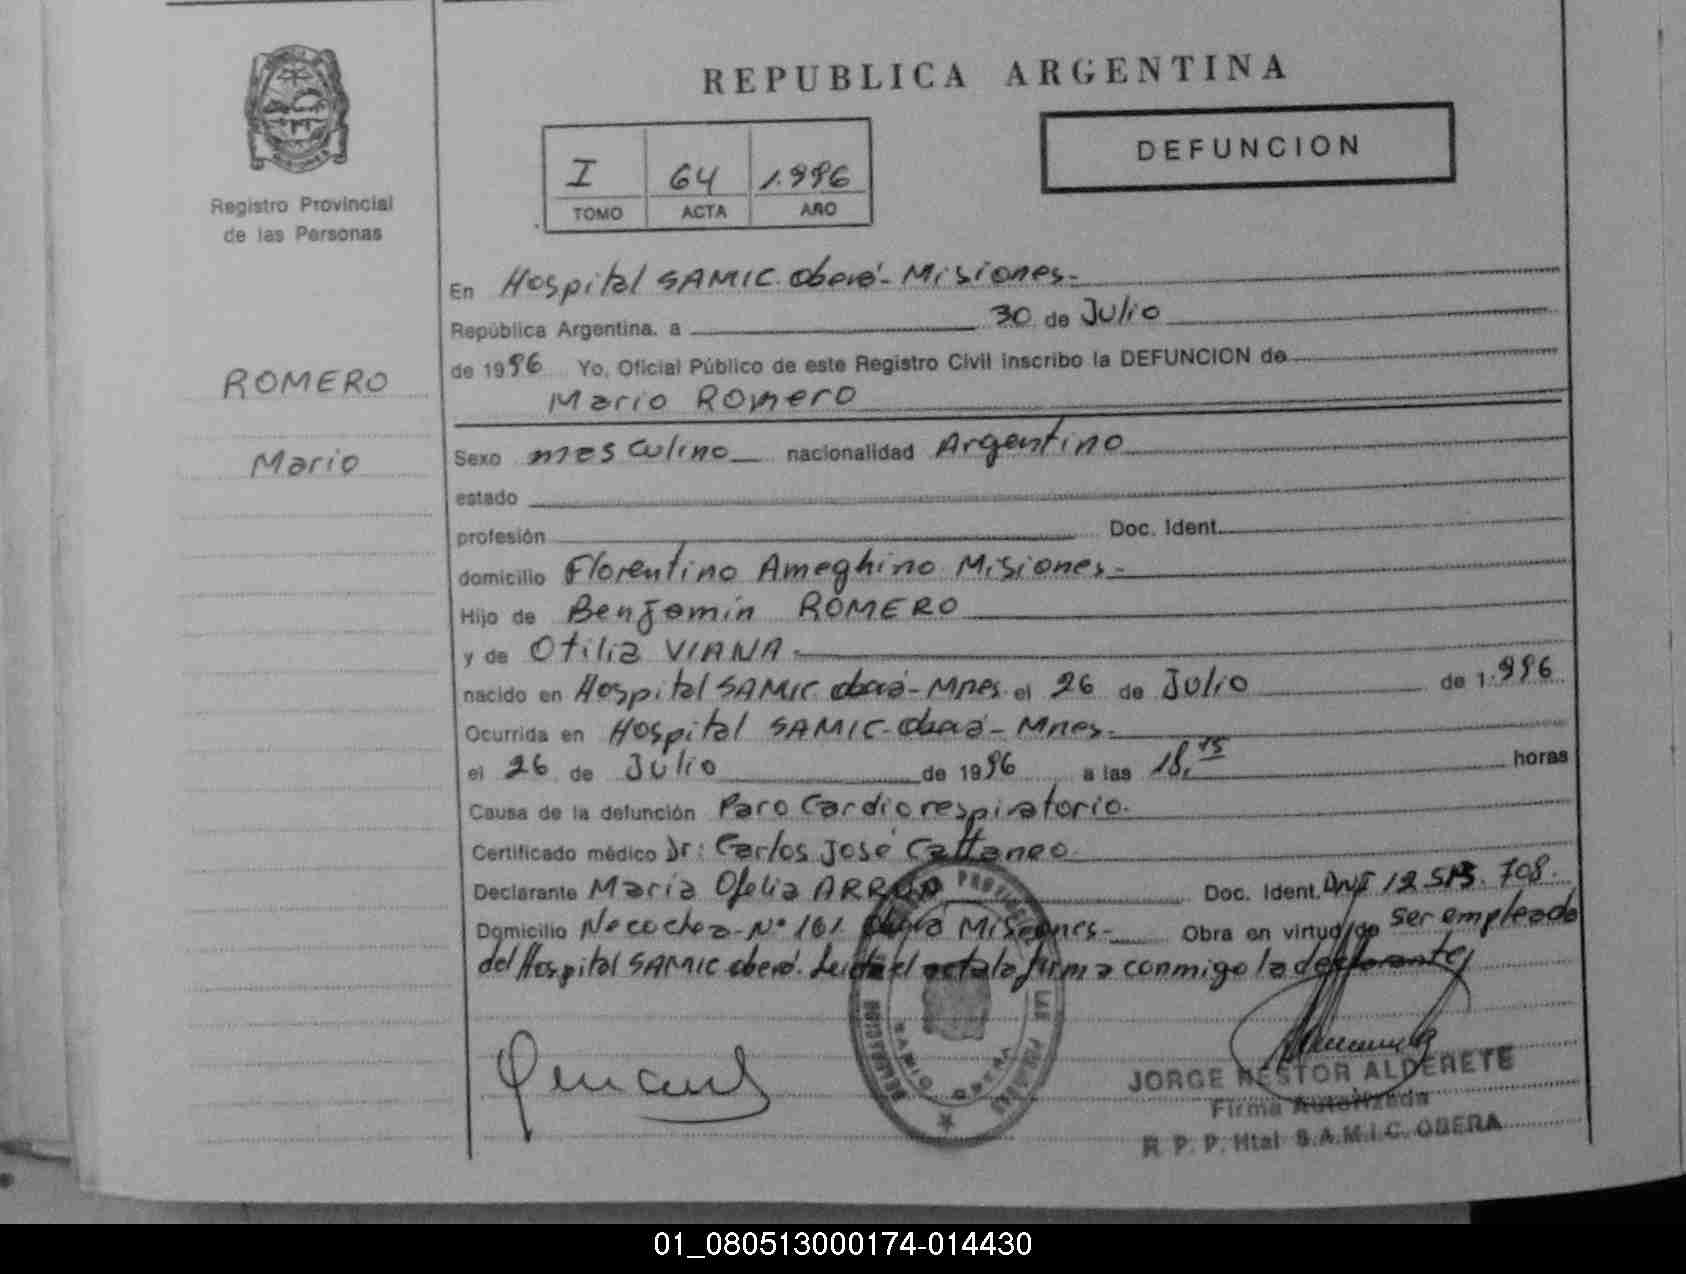 REPUBLICA ARGENTINA
DEFUNCION
I 64 1.996
TOMO ACTA AÑO
Registro Provincial
de las Personas
ROMERO
Mario
En Hospital SAMIC. Oberá - Misiones-
República Argentina, a 30 de Julio
de 1996 Yo, Oficial Público de este Registro Civil inscribo la DEFUNCION de
Mario Romero
Sexo masculino nacionalidad Argentino
estado
profesión Doc. Ident.
domicilio Florentino Ameghino Misiones.-
Hijo de Benjamín ROMERO
y de Otilia VIANA-
nacido en Hospital SAMIC Oberá - Mnes. el 26 de Julio de 1.996
Ocurrida en Hospital SAMIC - Oberá - Mnes.-
el 26 de Julio de 1996 a las 18,15 horas
Causa de la defunción Paro Cardiorespiratorio.
Certificado médico Dr: Carlos José Cattaneo.
Declarante María Ofelia Doc. Ident. DNI 12 708.
Domicilio Necochea - N° 161. Oberá Misiones- Obra en virtud de ser empleada
del Hospital SAMIC Oberá. Leída el acta la firma conmigo la declarante,
JORGE NESTOR ALDERETE
Firma Autorizada
R. P. P. Htal S.A.M.I.C. OBERA
01_080513000174-014430